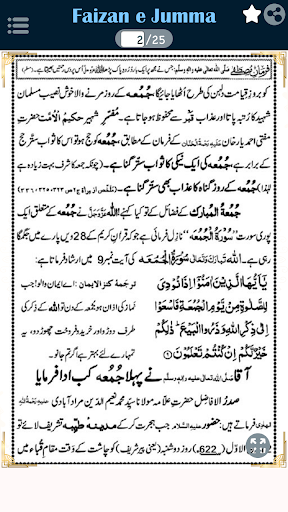 Faizan e Jumma
2/25
فرمانِ مصطفےٰ صلی اللہ تعالیٰ علیہ والہ وسلم: جس نے مجھ پر ایک بار درود پاک پڑھا
کو بروزِ قیامت دلہن کی طرح اُٹھایا جائیگا جُمُعہ کے روز مرنے والا خوش نصیب مسلمان
شہید کا رتبہ پاتا اور عذابِ قبر سے محفوظ ہو جاتا ہے۔ مفسّرِ شہیر حکیمُ الْاُمَّت حضرتِ
مفتی احمد یار خان علیہ رحمۃ الحنّان کے فرمان کے مطابق، جُمُعہ کو حج ہو تو اس کا ثواب ستّر حج
کے برابر ہے، جُمُعہ کی ایک نیکی کا ثواب ستّر گنا ہے۔ (چونکہ جمعہ کا شرف بہت زیادہ ہے
لہٰذا) جُمُعہ کے روز گناہ کا عذاب بھی ستّر گنا ہے۔
جُمُعَۃُ الْمُبارَک کے فضائل کے تو کیا کہنے! اللہ عزوجل نے جُمُعہ کے متعلق ایک
پوری سورت ”سُوْرَۃُ الْجُمُعَہ“ نازل فرمائی ہے جو قرآنِ کریم کے 28ویں پارے میں جگمگا
رہی ہے۔ اللہ تبارک وتعالیٰ سُوْرَۃُ الْجُمُعَہ کی آیت نمبر 9 میں ارشاد فرماتا ہے:
یٰۤاَیُّهَا الَّذِیْنَ اٰمَنُوْۤا اِذَا نُوْدِیَ
لِلصَّلٰوةِ مِنْ یَّوْمِ الْجُمُعَةِ فَاسْعَوْا
اِلٰى ذِكْرِ اللّٰهِ وَ ذَرُوا الْبَیْعَ ؕ ذٰلِكُمْ
خَیْرٌ لَّكُمْ اِنْ كُنْتُمْ تَعْلَمُوْنَ
ترجمۂ کنز الایمان: اے ایمان والو جب
نماز کی اذان ہو جمعہ کے دن تو اللہ کے ذکر کی
طرف دوڑو اور خرید و فروخت چھوڑ دو، یہ
تمہارے لئے بہتر ہے اگر تم جانو۔
آقا صلی اللہ تعالیٰ علیہ والہ وسلم نے پہلا جُمُعہ کب ادا فرمایا
صدرُ الافاضل حضرتِ علامہ مولانا سیّد محمد نعیم الدین مراد آبادی
فرماتے ہیں: حضور علیہ السلام جب ہجرت کر کے مدینہ طیّبہ تشریف لائے تو
الاوّل (622ء) روزِ دوشنبہ (یعنی پیر شریف) کو چاشت کے وقت مقامِ قُباء میں